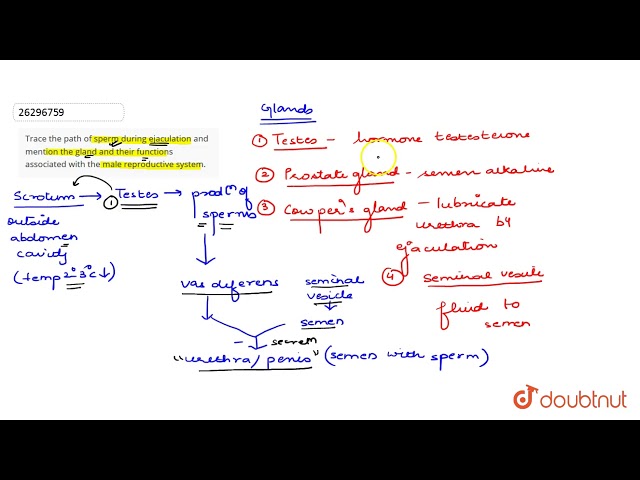 26296759
Trace the path of sperm during ejaculation and
mention the gland and their functions
associated with the male reproductive system.
Scrotum → ① Testes → prodⁿ of
sperms
outside
abdomen
cavity
(temp 2° 3°C ↓)
vas diferens
seminal
vesicle
semen
"urethra/penis" (semen with sperm)
Glands
① Testes - hormone testesterone
② Prostate gland - semen alkaline
③ Cowper's gland - lubricate
urethra by
ejaculation
④ Seminal vesicle
fluid to
semen
doubtnut